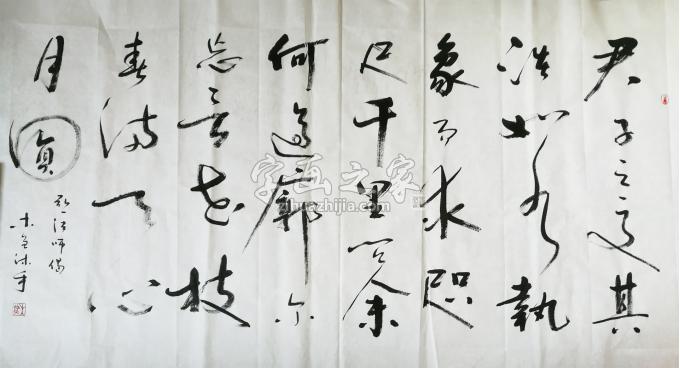 君子之交其
淡如水執
象而求咫
尺千里問余
何適廓尔
忘言花枝
春滿天心
月圓
弘一法師偈
沐手
字画之家
zihuazhijia.com